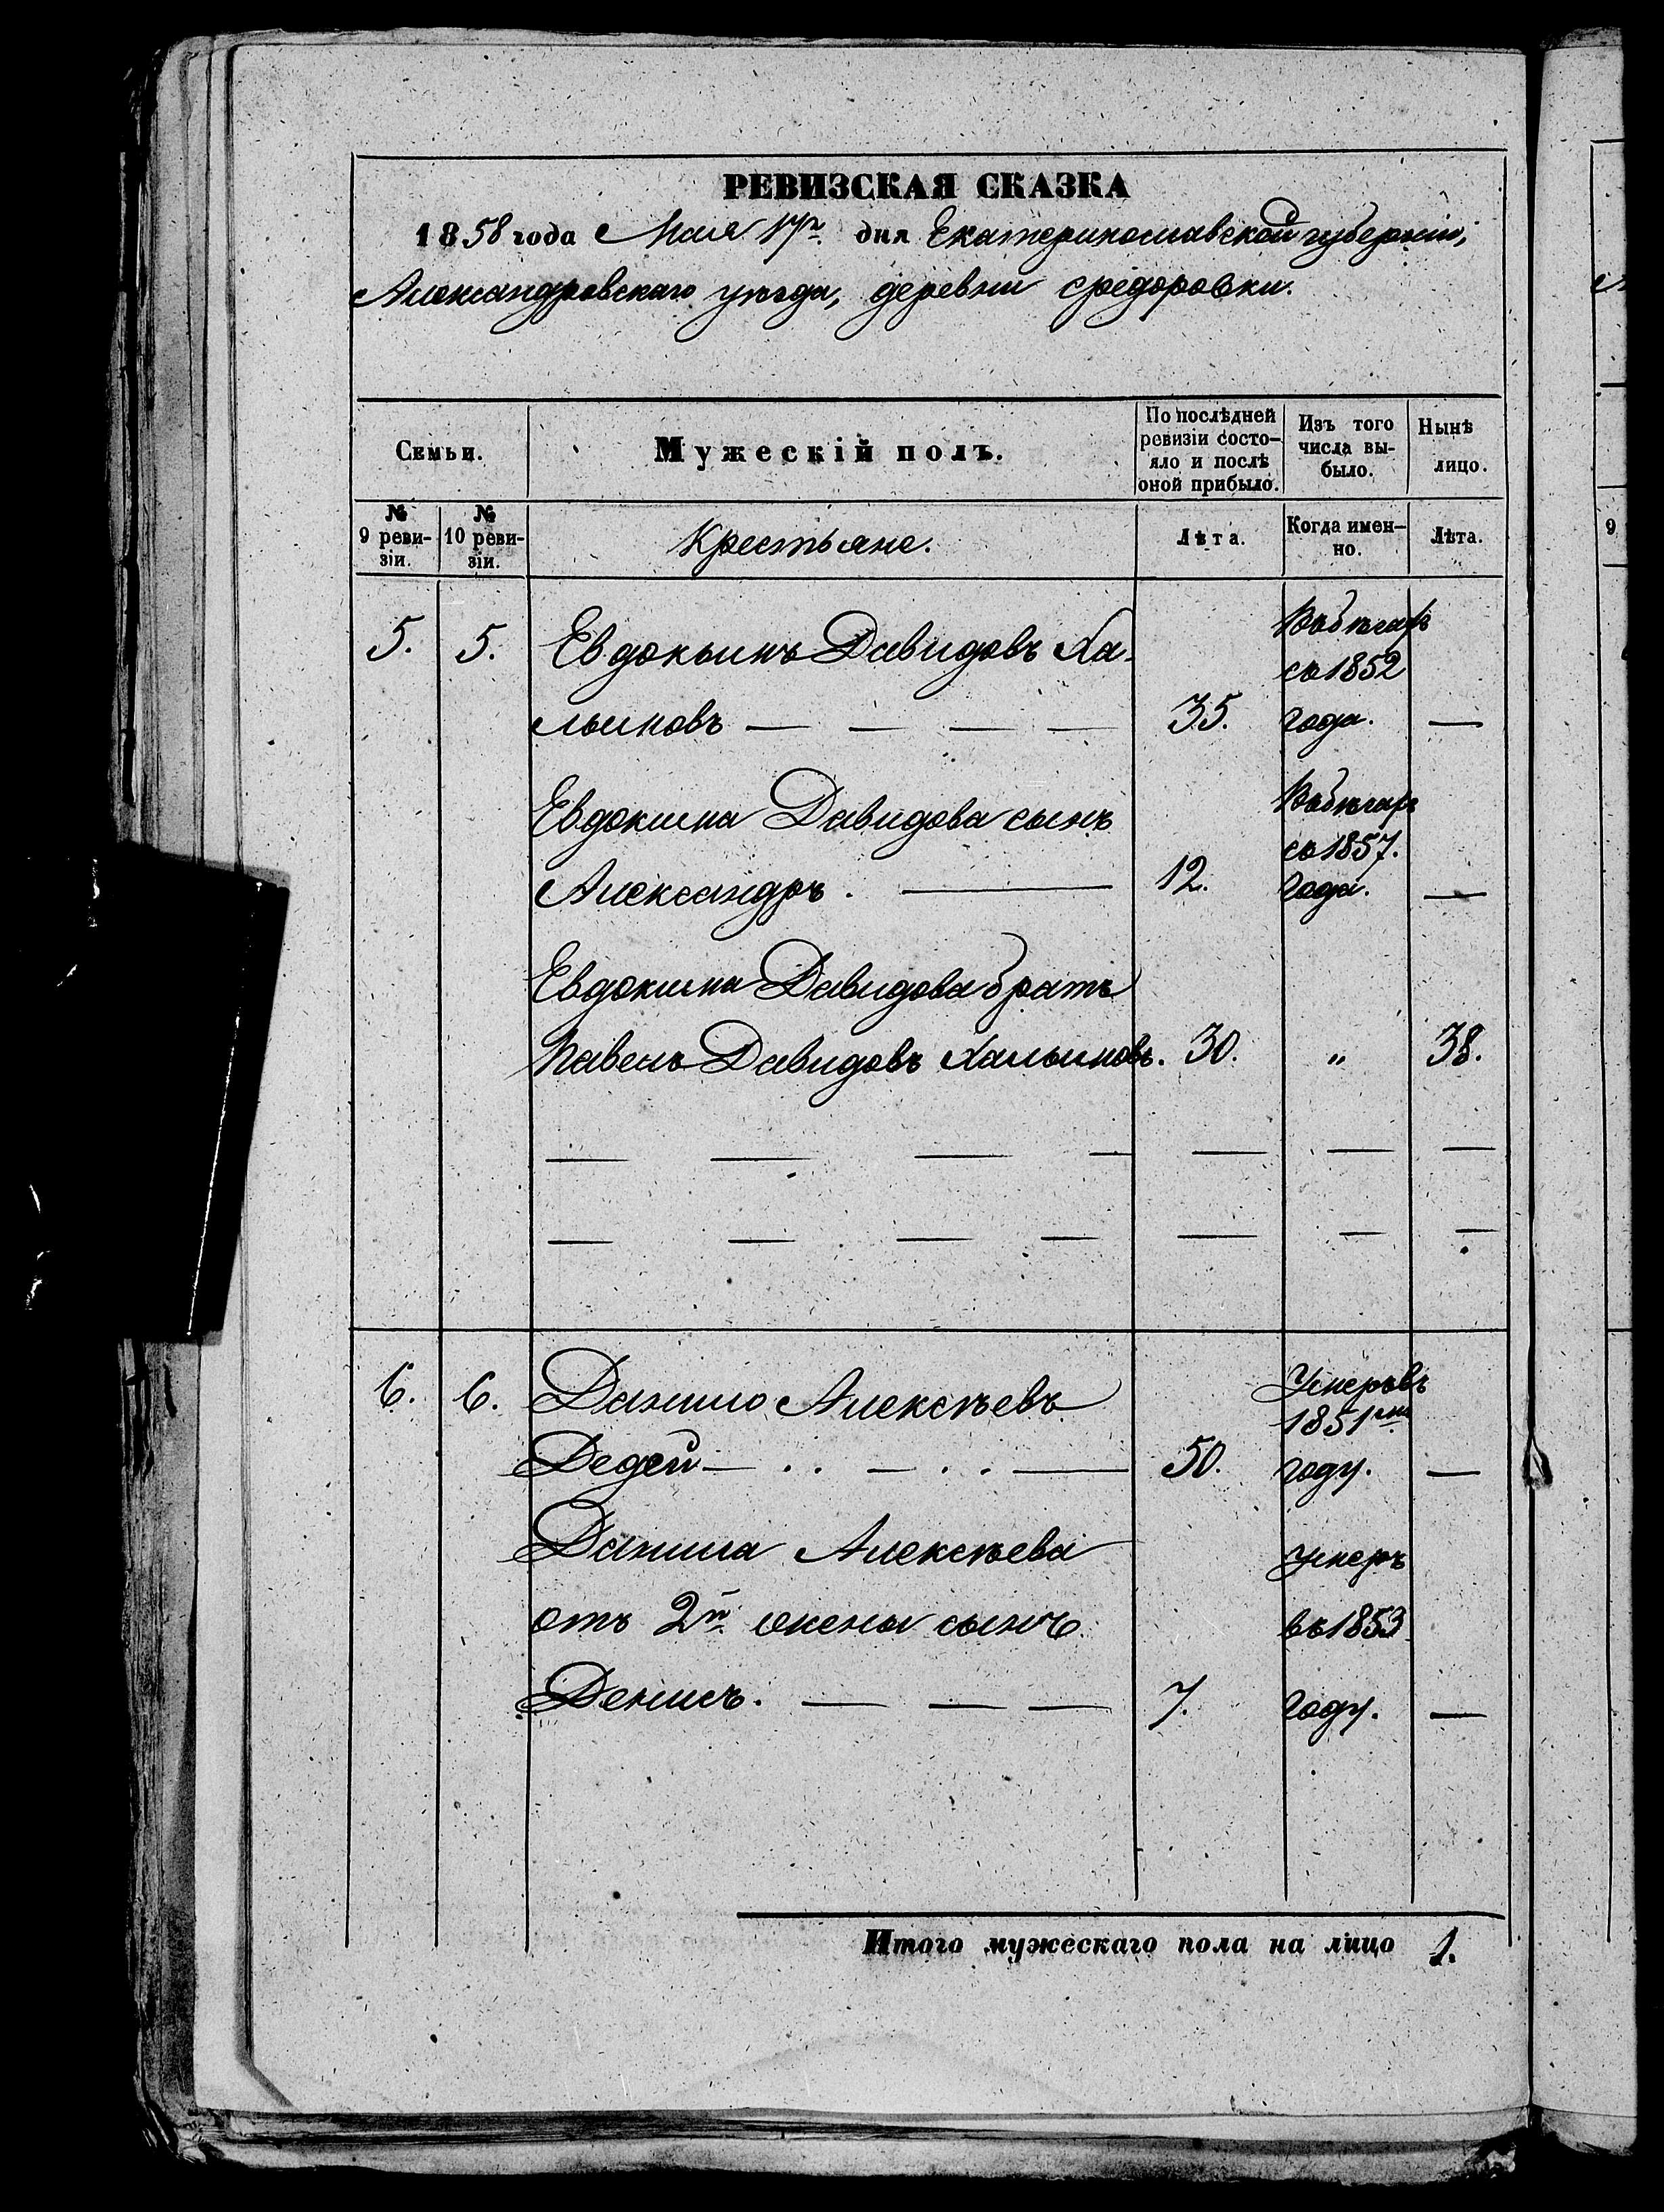 РЕВИЗСКАЯ СКАЗКА
1858 года Мая 17го. дня Екатеринославской губерніи,
Александровскаго уѣзда, деревни Федоровки.
Семьи.
Мужескій полъ.
По послѣдней ревизіи состо-
яло и послѣ
оной прибыло.
Изъ того
числа вы-
было.
Нынѣ
лицо.
№
9 реви-
зіи.
№
10 реви-
зіи.
Крестьяне.
Лѣта.
Когда имен-
но.
Лѣта.
5. 5. Евдокимъ Давидовъ Ха- Въ бѣгахъ
съ 1852
лымовъ — — — — 35. года. —
Евдокима Давидова сынъ Въ бѣгахъ
съ 1857.
Александръ. — 12. года. —
Евдокима Давидова братъ
Павелъ Давидовъ Халымовъ. 30. „ 38.
— — — — — — —
— — — — — — —
6. 6. Данило Алексѣевъ Умеръ въ
1851мъ
Дедей — . . — . . — 50. году. —
Данила Алексѣева Умеръ
отъ 2й жены сынъ въ 1853
Денисъ. — — — 7. году. —
Итого мужескаго пола на лицо 1.
9